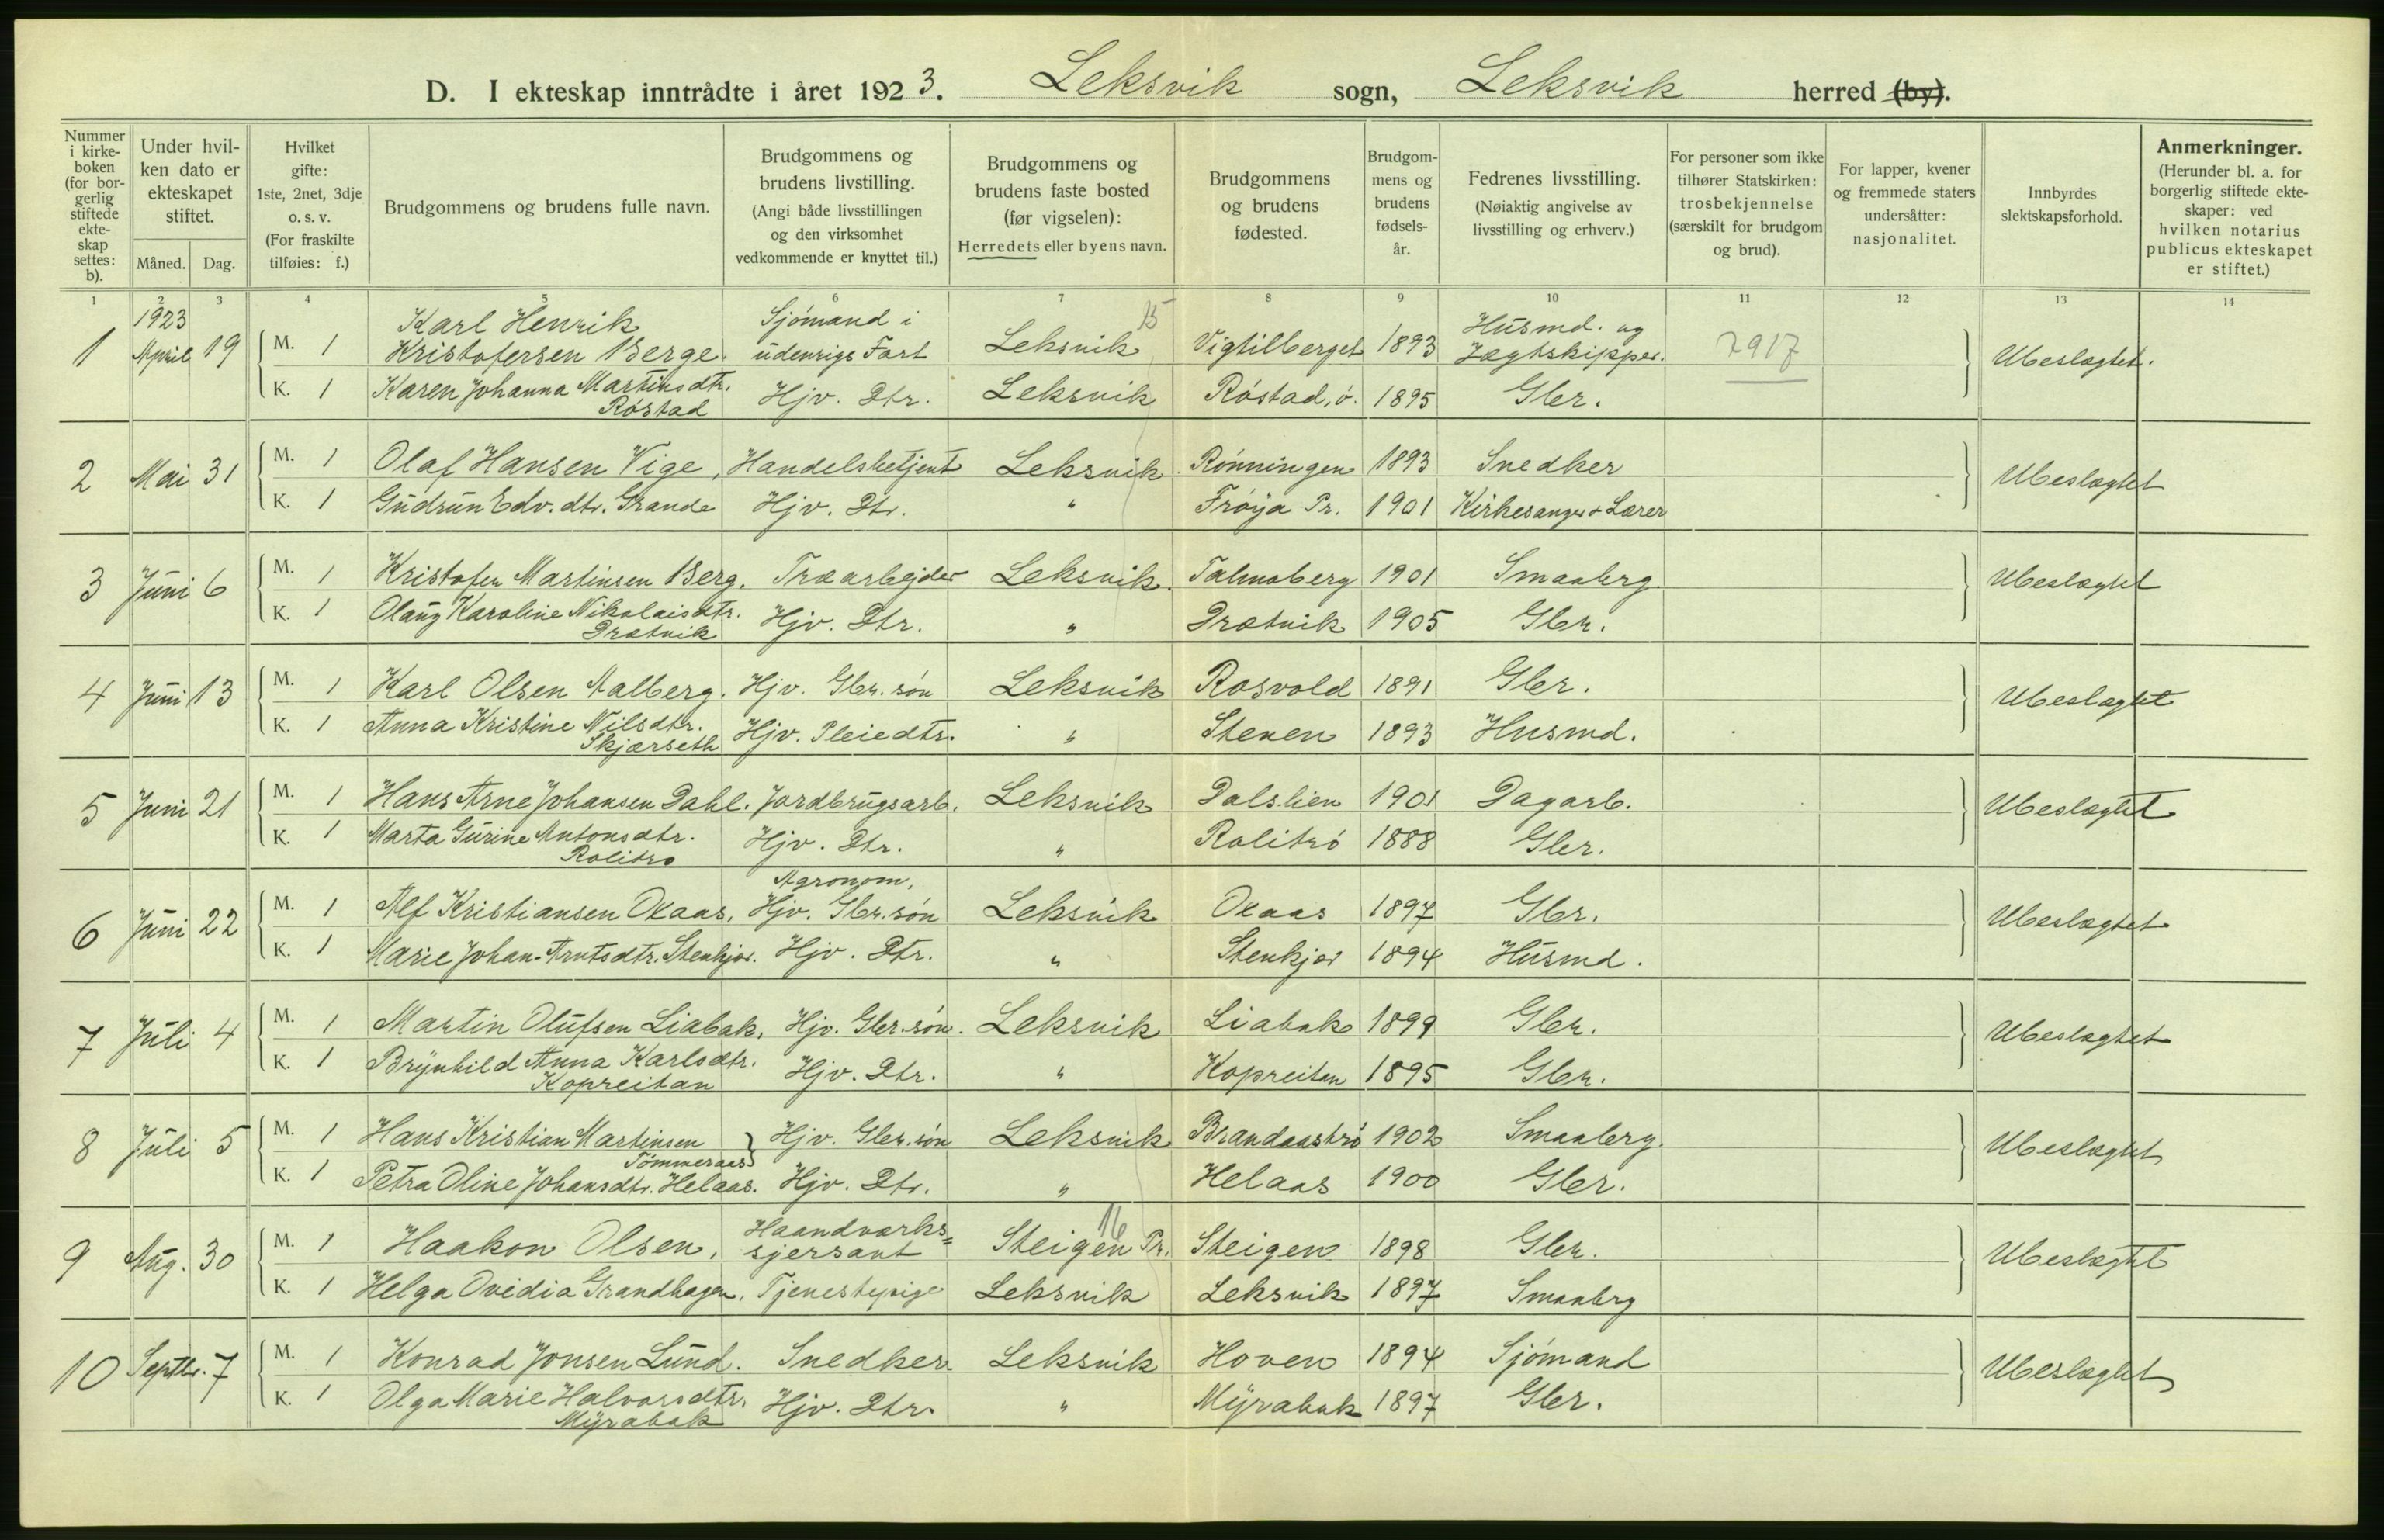 D. I ekteskap inntrådte i året 1923. Leksvik sogn, Leksvik herred (by).
Nummer i kirkeboken (for borgerlig stiftede ekteskap settes: b).
Under hvilken dato er ekteskapet stiftet.
Måned. Dag.
Hvilket gifte: 1ste, 2net, 3dje o. s. v. (For fraskilte tilføies: f.)
Brudgommens og brudens fulle navn.
Brudgommens og brudens livstilling. (Angi både livsstillingen og den virksomhet vedkommende er knyttet til.)
Brudgommens og brudens faste bosted (før vigselen): Herredets eller byens navn.
Brudgommens og brudens fødested.
Brudgommens og brudens fødselsår.
Fedrenes livsstilling. (Nøiaktig angivelse av livsstilling og erhverv.)
For personer som ikke tilhører Statskirken: trosbekjennelse (særskilt for brudgom og brud).
For lapper, kvener og fremmede staters undersåtter: nasjonalitet.
Innbyrdes slektskapsforhold.
Anmerkninger. (Herunder bl. a. for borgerlig stiftede ekteskaper: ved hvilken notarius publicus ekteskapet er stiftet.)
1 2 3 4 5 6 7 8 9 10 11 12 13 14
1 1923 April 19 M. 1 Karl Henrik Kristofersen Berge. Sjömand i udenrigs Fart Leksvik 15 Vigtilberget 1893 Husmd. og Jægtskipper. 2917 Ubeslægtet.
K. 1 Karen Johanna Martinsdtr. Röstad Hjv. Dtr. Leksvik Röstad, ö. 1895 Gbr.
2 Mai 31 M. 1 Olaf Hansen Vige, Handelsbetjent Leksvik Rönningen 1893 Snedker Ubeslægtet
K. 1 Gudrun Edv. dtr. Grande Hjv. Dtr. " Fröya Pr. 1901 Kirkesanger & Lærer
3 Juni 6 M. 1 Kristofer Martinsen Berg. Træarbejder Leksvik. Talmoberg 1901 Smaabrg. Ubeslægtet
K. 1 Olaug Karoline Nikolaisdtr. Drætvik Hjv. Dtr. " Drætvik 1905 Gbr.
4 Juni 13 M. 1 Karl Olsen Aalberg. Hjv. Gbr. sön Leksvik Rosvold 1891 Gbr. Ubeslægtet
K. 1 Anna Kristine Nilsdtr. Skjærseth Hjv. Pleiedtr. " Stenen 1893 Husmd.
5 Juni 21 M. 1 Hans Arne Johansen Dahl. Jordbrugsarb. Leksvik Dalslien 1901 Dagarb. Ubeslægtet
K. 1 Marta Gurine Antonsdtr. Rolitrö Hjv. Dtr. " Rolitrö 1888 Gbr.
6 Juni 22 M. 1 Alf Kristiansen Oxaas. Agronom, Hjv. Gbr. sön Leksvik Oxaas 1897 Gbr. Ubeslægtet
K. 1 Marie Johan-Arntsdtr. Stenkjær. Hjv. Dtr. " Stenkjær 1894 Husmd.
7 Juli 4 M. 1 Martin Olufsen Liabak. Hjv. Gbr. sön. Leksvik Liabak 1899 Gbr. Ubeslægtet
K. 1 Brynhild Anna Karlsdtr. Kopreitan Hjv. Dtr. " Kopreitan 1895 Gbr.
8 Juli 5 M. 1 Hans Kristian Martinsen Tömmeraas } Hjv. Gbr. sön Leksvik Brandaaströ 1902 Smaabrg. Ubeslægtet
K. 1 Petra Oline Johansdtr. Helaas. Hjv. Dtr. " Helaas 1900 Gbr.
9 Aug. 30 M. 1 Haakon Olsen. Haandværks= sjersant Steigen Pr. 16 Steigen 1898 Gbr. Ubeslægtet
K. 1 Helga Ovidia Grandhagen. Tjenestepige Leksvik Leksvik 1897 Smaabrg
10 Septbr. 7 M. 1 Konrad Jonsen Lund. Snedker Leksvik Hoven 1894 Sjömand Ubeslægtet
K. 1 Olga Marie Halvorsdtr. Myrabak Hjv. Dtr. " Myrabak 1897 Gbr.